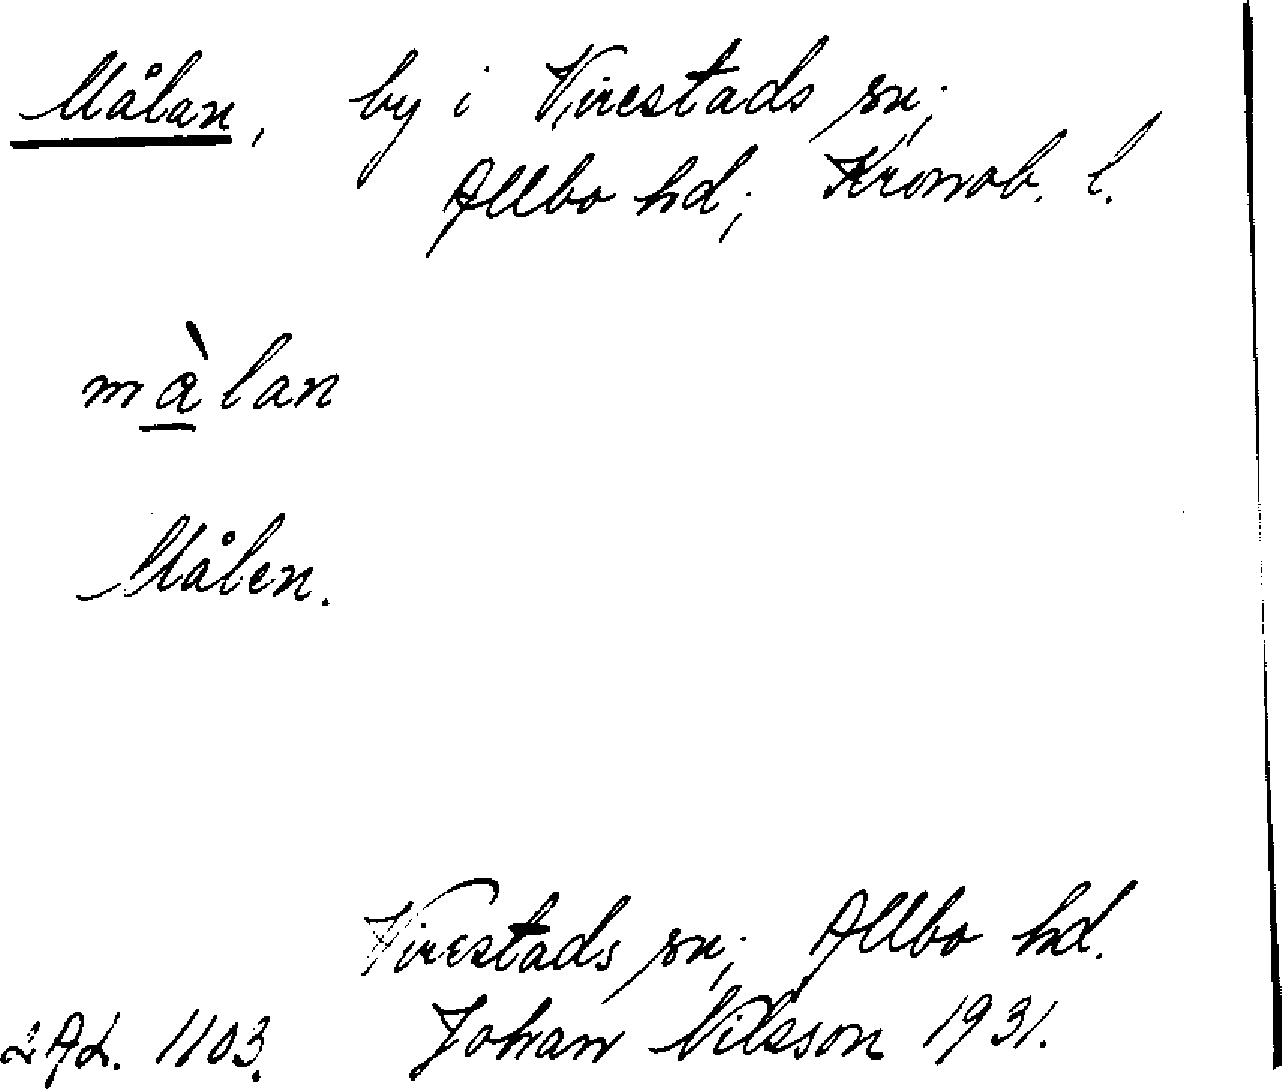 Målan, by i Virestads sn;
Allbo hd; Kronob. l.
màlan
Målen.
Virestads sn; Allbo hd.
1103. Johan Nilsson 1931.